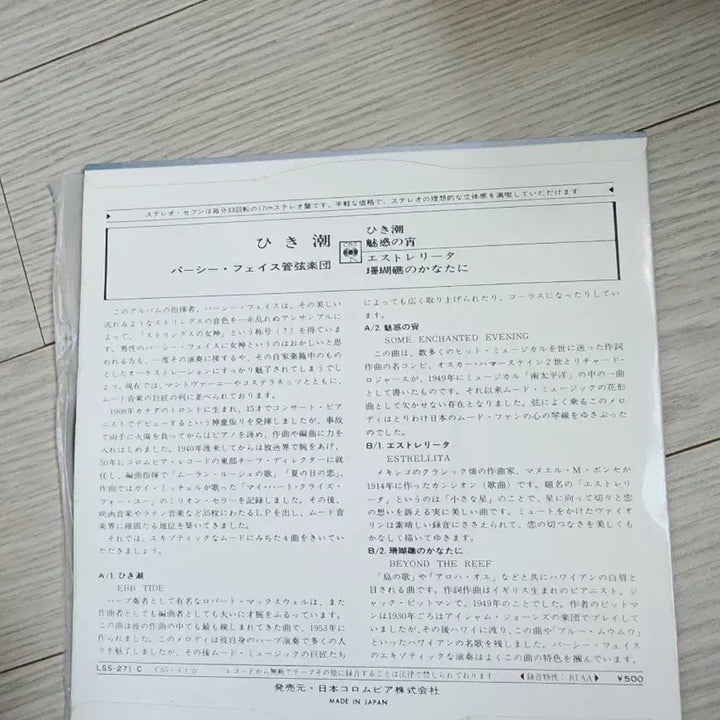 ステレオ・セブンは毎分33回転の17cmステレオ盤です。手軽な価格で、ステレオの理想的な立体感を満喫していただけます
ひき潮
パーシー・フェイス管弦楽団
ひき潮
魅惑の宵
エストレリータ
珊瑚礁のかなたに
このアルバムの指揮者、パーシー・フェイスは、その美しい
流れるようなストリングスの音色を一糸乱れぬアンサンブルに
よって、「ストリングスの女神」という称号(?)を得ていま
す。男性のパーシー・フェイスに女神というのはおかしいと思
われる方も、一度その演奏に接するや、その自家薬籠中のもの
としたオーケストレーションにすっかり魅了されてしまうでし
ょう。現在では、マントヴァーニーやコステラネッツとともに、
ムード音楽の巨匠の列に並べられております。
1908年カナダのトロントに生まれ、15才でコンサート・ピア
ニストでデビューするという神童振りを発揮しましたが、事故
で両手に火傷を負ってからはピアノを諦め、作曲や編曲に力を
入れはじめました。1940年渡米してからは放送界で腕をあげ、
50年にコロムビア・レコードの東部チーフ・ディレクターに就
任し、編曲指揮で「ムーラン・ルージュの歌」「夏の日の恋」、
作曲ではガイ・ミッチェルが歌った「マイ・ハート・クライズ・
フォー・ユー」のミリオン・セラーを記録しました。その後、
映画音楽やラテン音楽など35枚にわたるLPを出し、ムード音
楽界に確固たる地位を築いてきました。
それでは、エキゾティックなムードにみちた4曲をきいてい
ただきましょう。
A/1. ひき潮
EBB TIDE
ハープ奏者として有名なロバート・マックスウェルは、また
作曲者としても編曲者としても大いに才腕をふるっています。
この曲は彼の作曲の中でも最も親しまれてきた曲で、1953年に
作られました。このメロディは彼自身のハープ演奏で多くの人
々を魅了しましたが、その後ムード・ミュージックの巨匠たち
によっても広く取り上げられたり、コーラスになったりしてい
ます。
A/2. 魅惑の宵
SOME ENCHANTED EVENING
この曲は、数多くのヒット・ミュージカルを世に送った作詞
作曲の名コンビ、オスカー・ハマースティン2世とリチャード・
ロジャースが、1949年にミュージカル「南太平洋」の中の一曲
として書いたものです。それ以来ムード・ミュージックの花形
曲として欠かせない存在となりました。弦によく乗るこのメロ
ディはとりわけ日本のムード・ファンの心の琴線をゆさぶった
のでした。
B/1. エストレリータ
ESTRELLITA
メキシコのクラシック畑の作曲家、マヌエル・M・ポンセが
1914年に作ったカンシオン(歌曲)です。題名の「エストレリ
ータ」というのは「小さな星」のことで、星に向って切々と恋
の想いを訴える実に美しい曲です。ミュートをかけたヴァイオ
リンは素晴しい録音にささえられて、恋の切つなさを美しくも
かなしく描いてゆきます。
B/2. 珊瑚礁のかなたに
BEYOND THE REEF
「島の歌」や「アロハ・オエ」などと共にハワイアンの白眉と
目される曲です。作詞作曲はイギリス生まれのピアニスト、ジ
ャック・ピットマンで、1949年のことでした。作者のピットマ
ンは1930年ごろはアイシャム・ジョーンズの楽団でプレイして
いましたが、その後ハワイに渡り、この曲や「ブルー・ムウムウ」
といったハワイアンの名歌を残しました。パーシー・フェイス
のエキゾティックな演奏はよくこの曲の特色を掴んでいます。
LSS-271-C
レコードから無断でテープその他に録音することは法律で禁じられております
◀録音特性:RIAA▶
¥500
発売元・日本コロムビア株式会社
MADE IN JAPAN